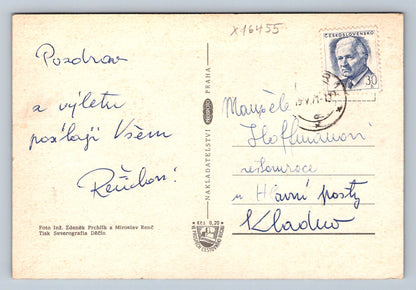 x16455
ČESKOSLOVENSKO
30
Pozdrav
z výletu
posílají Všem
NAKLADATELSTVÍ PRAHA
Manželé
Hoffmanovi
restaurace
u Hlavní pošty
Kladno
Kčs 0,20
Foto Ing. Zdeněk Prchlík a Miroslav Renč
Tisk Severografia Děčín